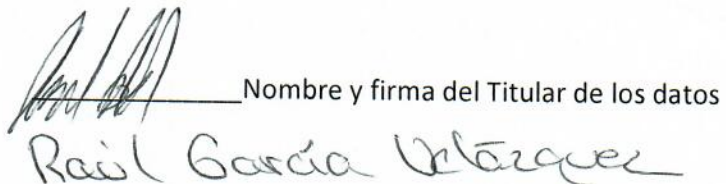 Nombre y firma del Titular de los datos
Raúl García Velázquez